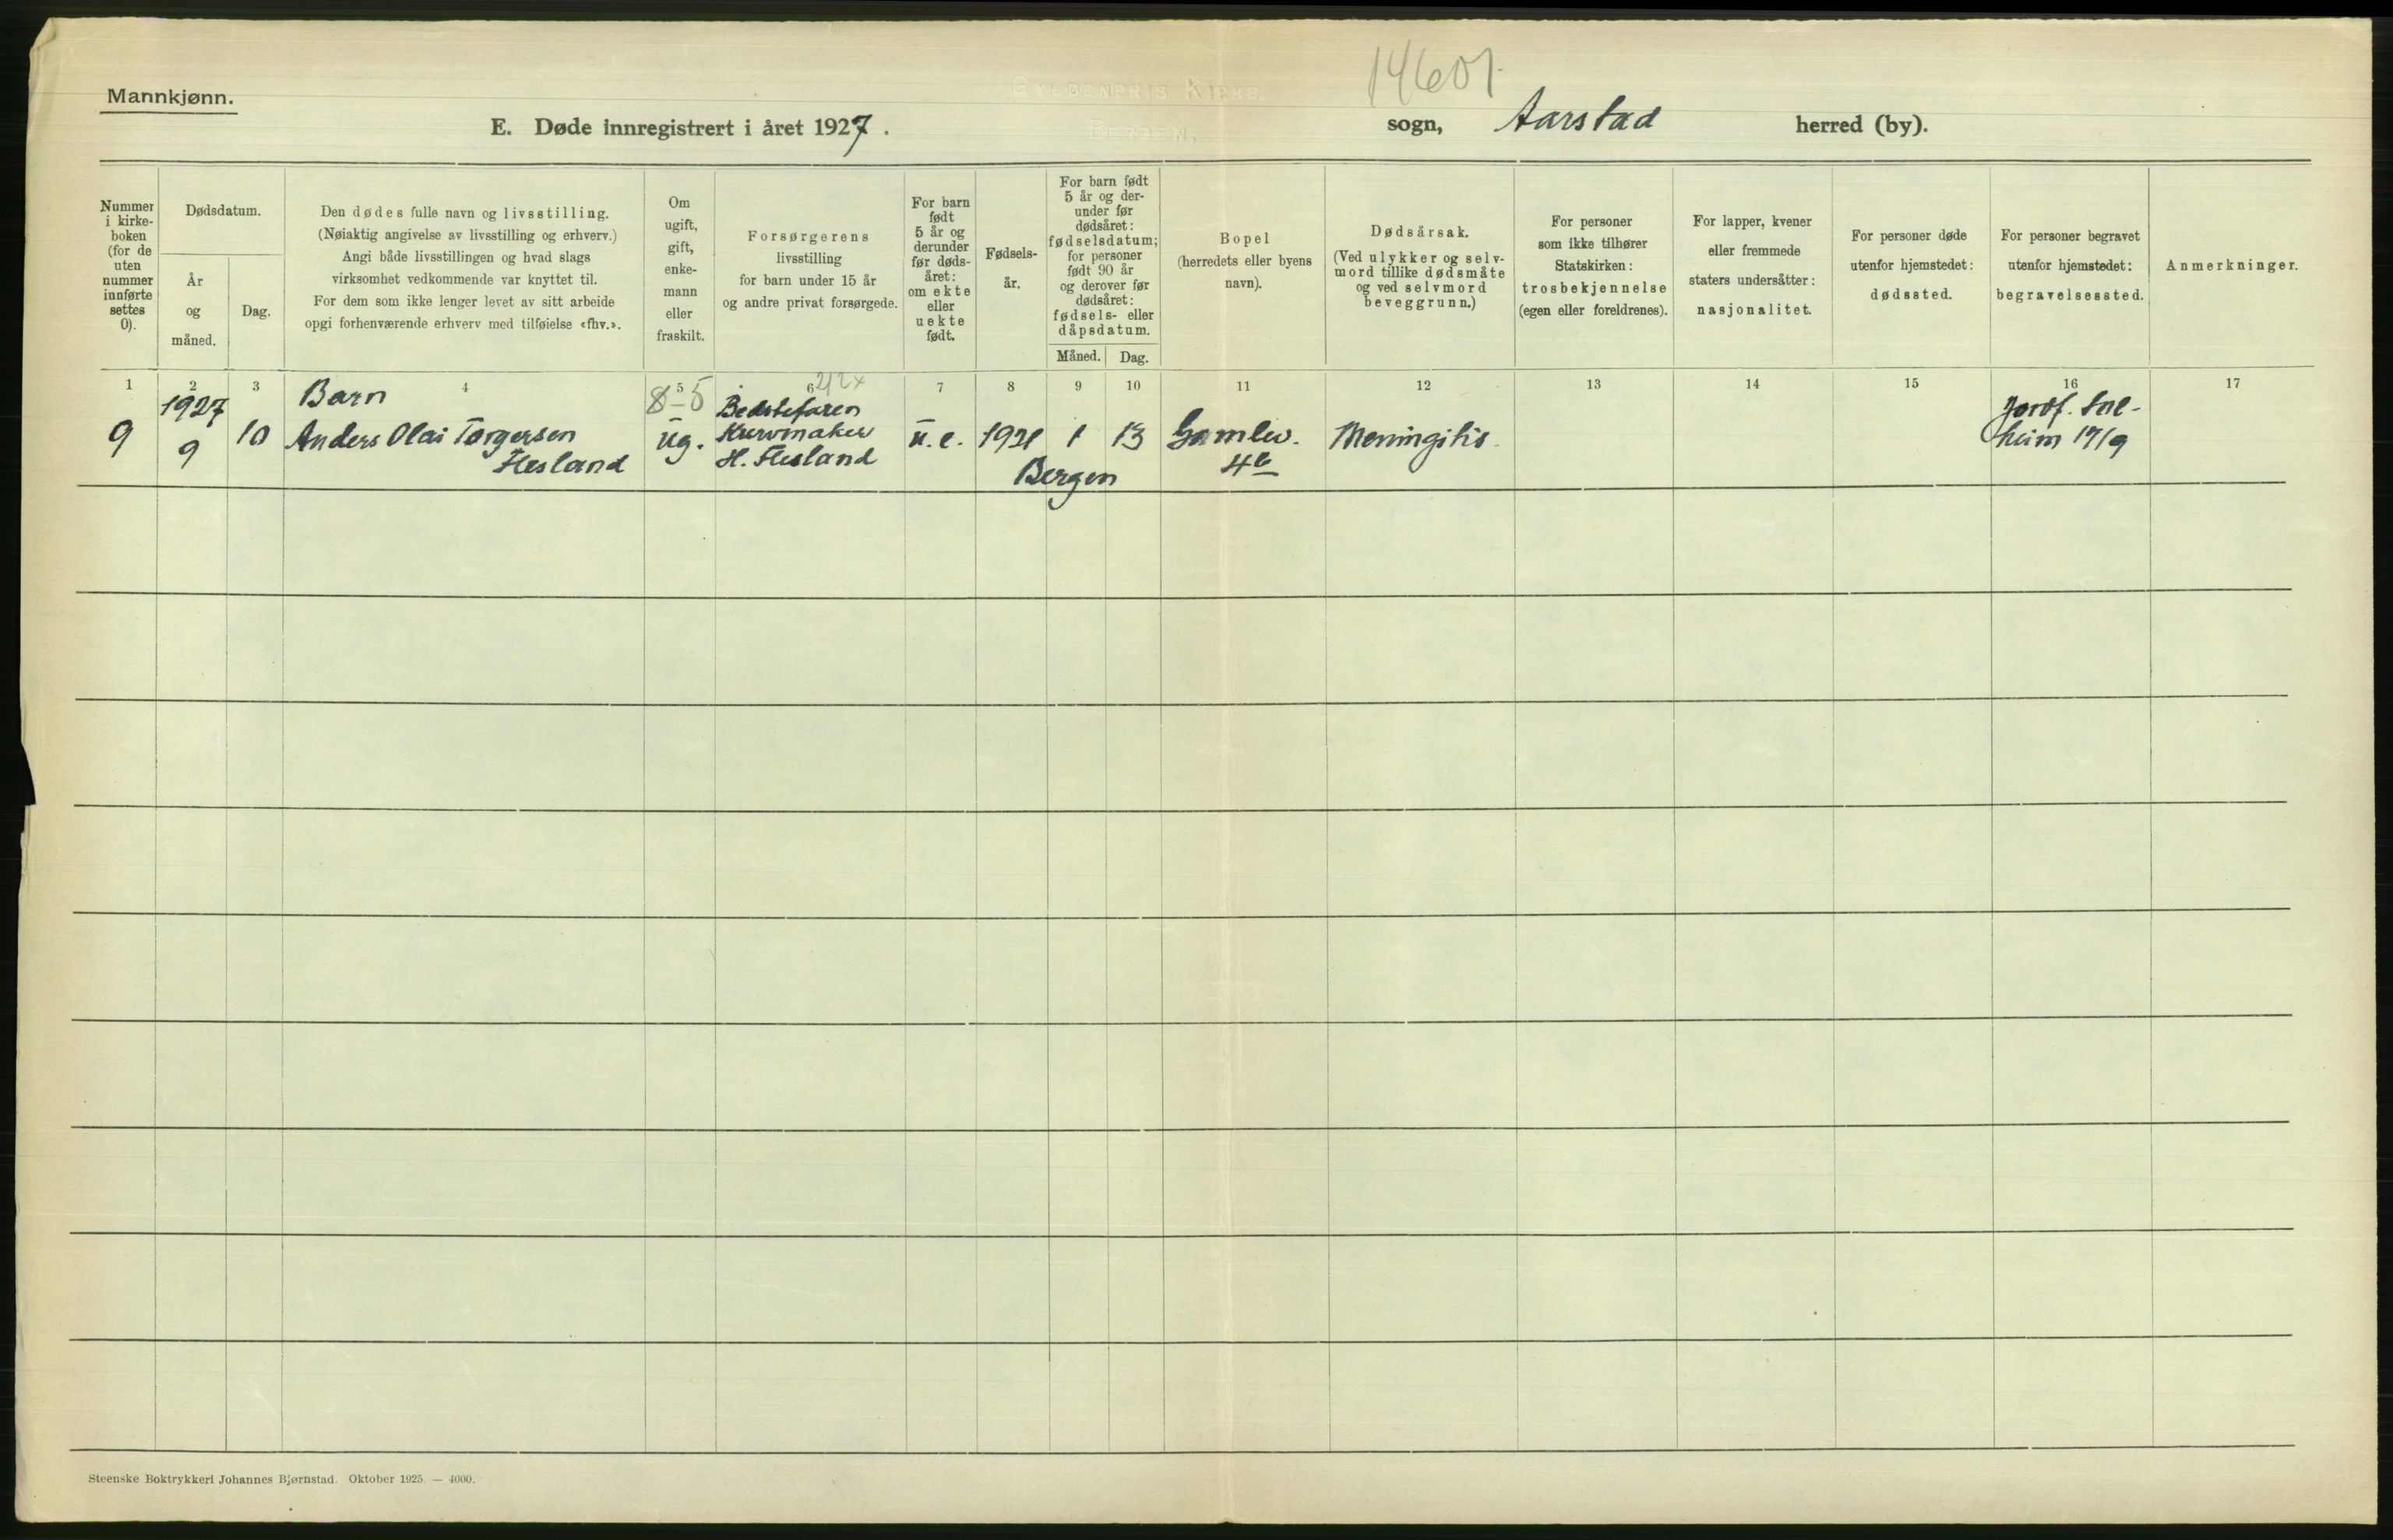 GYLDENPRIS KIRKE.
BERGEN.
14601
Mannkjønn.
E. Døde innregistrert i året 1927. sogn, Aarstad herred (by).
Nummer
i kirke-
boken
(for de
uten
nummer
innførte
settes
0).
Dødsdatum.
År
og
måned.
Dag.
Den dødes fulle navn og livsstilling.
(Nøiaktig angivelse av livsstilling og erhverv.)
Angi både livsstillingen og hvad slags
virksomhet vedkommende var knyttet til.
For dem som ikke lenger levet av sitt arbeide
opgi forhenværende erhverv med tilføielse «fhv.».
Om
ugift,
gift,
enke-
mann
eller
fraskilt.
Forsørgerens
livsstilling
for barn under 15 år
og andre privat forsørgede.
For barn
født
5 år og
derunder
før døds-
året:
om ekte
eller
uekte
født.
Fødsels-
år.
For barn født
5 år og der-
under før
dødsåret:
fødselsdatum;
for personer
født 90 år
og derover før
dødsåret:
fødsels- eller
dåpsdatum.
Måned. Dag.
Bopel
(herredets eller byens
navn).
Dødsårsak.
(Ved ulykker og selv-
mord tillike dødsmåte
og ved selvmord
beveggrunn.)
For personer
som ikke tilhører
Statskirken:
trosbekjennelse
(egen eller foreldrenes).
For lapper, kvener
eller fremmede
staters undersåtter:
nasjonalitet.
For personer døde
utenfor hjemstedet:
dødssted.
For personer begravet
utenfor hjemstedet:
begravelsessted.
Anmerkninger.
1 2 3 4 5 6 7 8 9 10 11 12 13 14 15 16 17
9
1927
9
10
Barn
Anders Olai Torgersen
Flesland
8-5
ug.
Bedstefaren
Kurvmaker
H. Flesland
u.e.
1921
1
13
Bergen
Gamlev.
4b
Meningitis.
Jordf. Sol-
heim 17/9
Steenske Boktrykkeri Johannes Bjørnstad. Oktober 1925. — 4000.